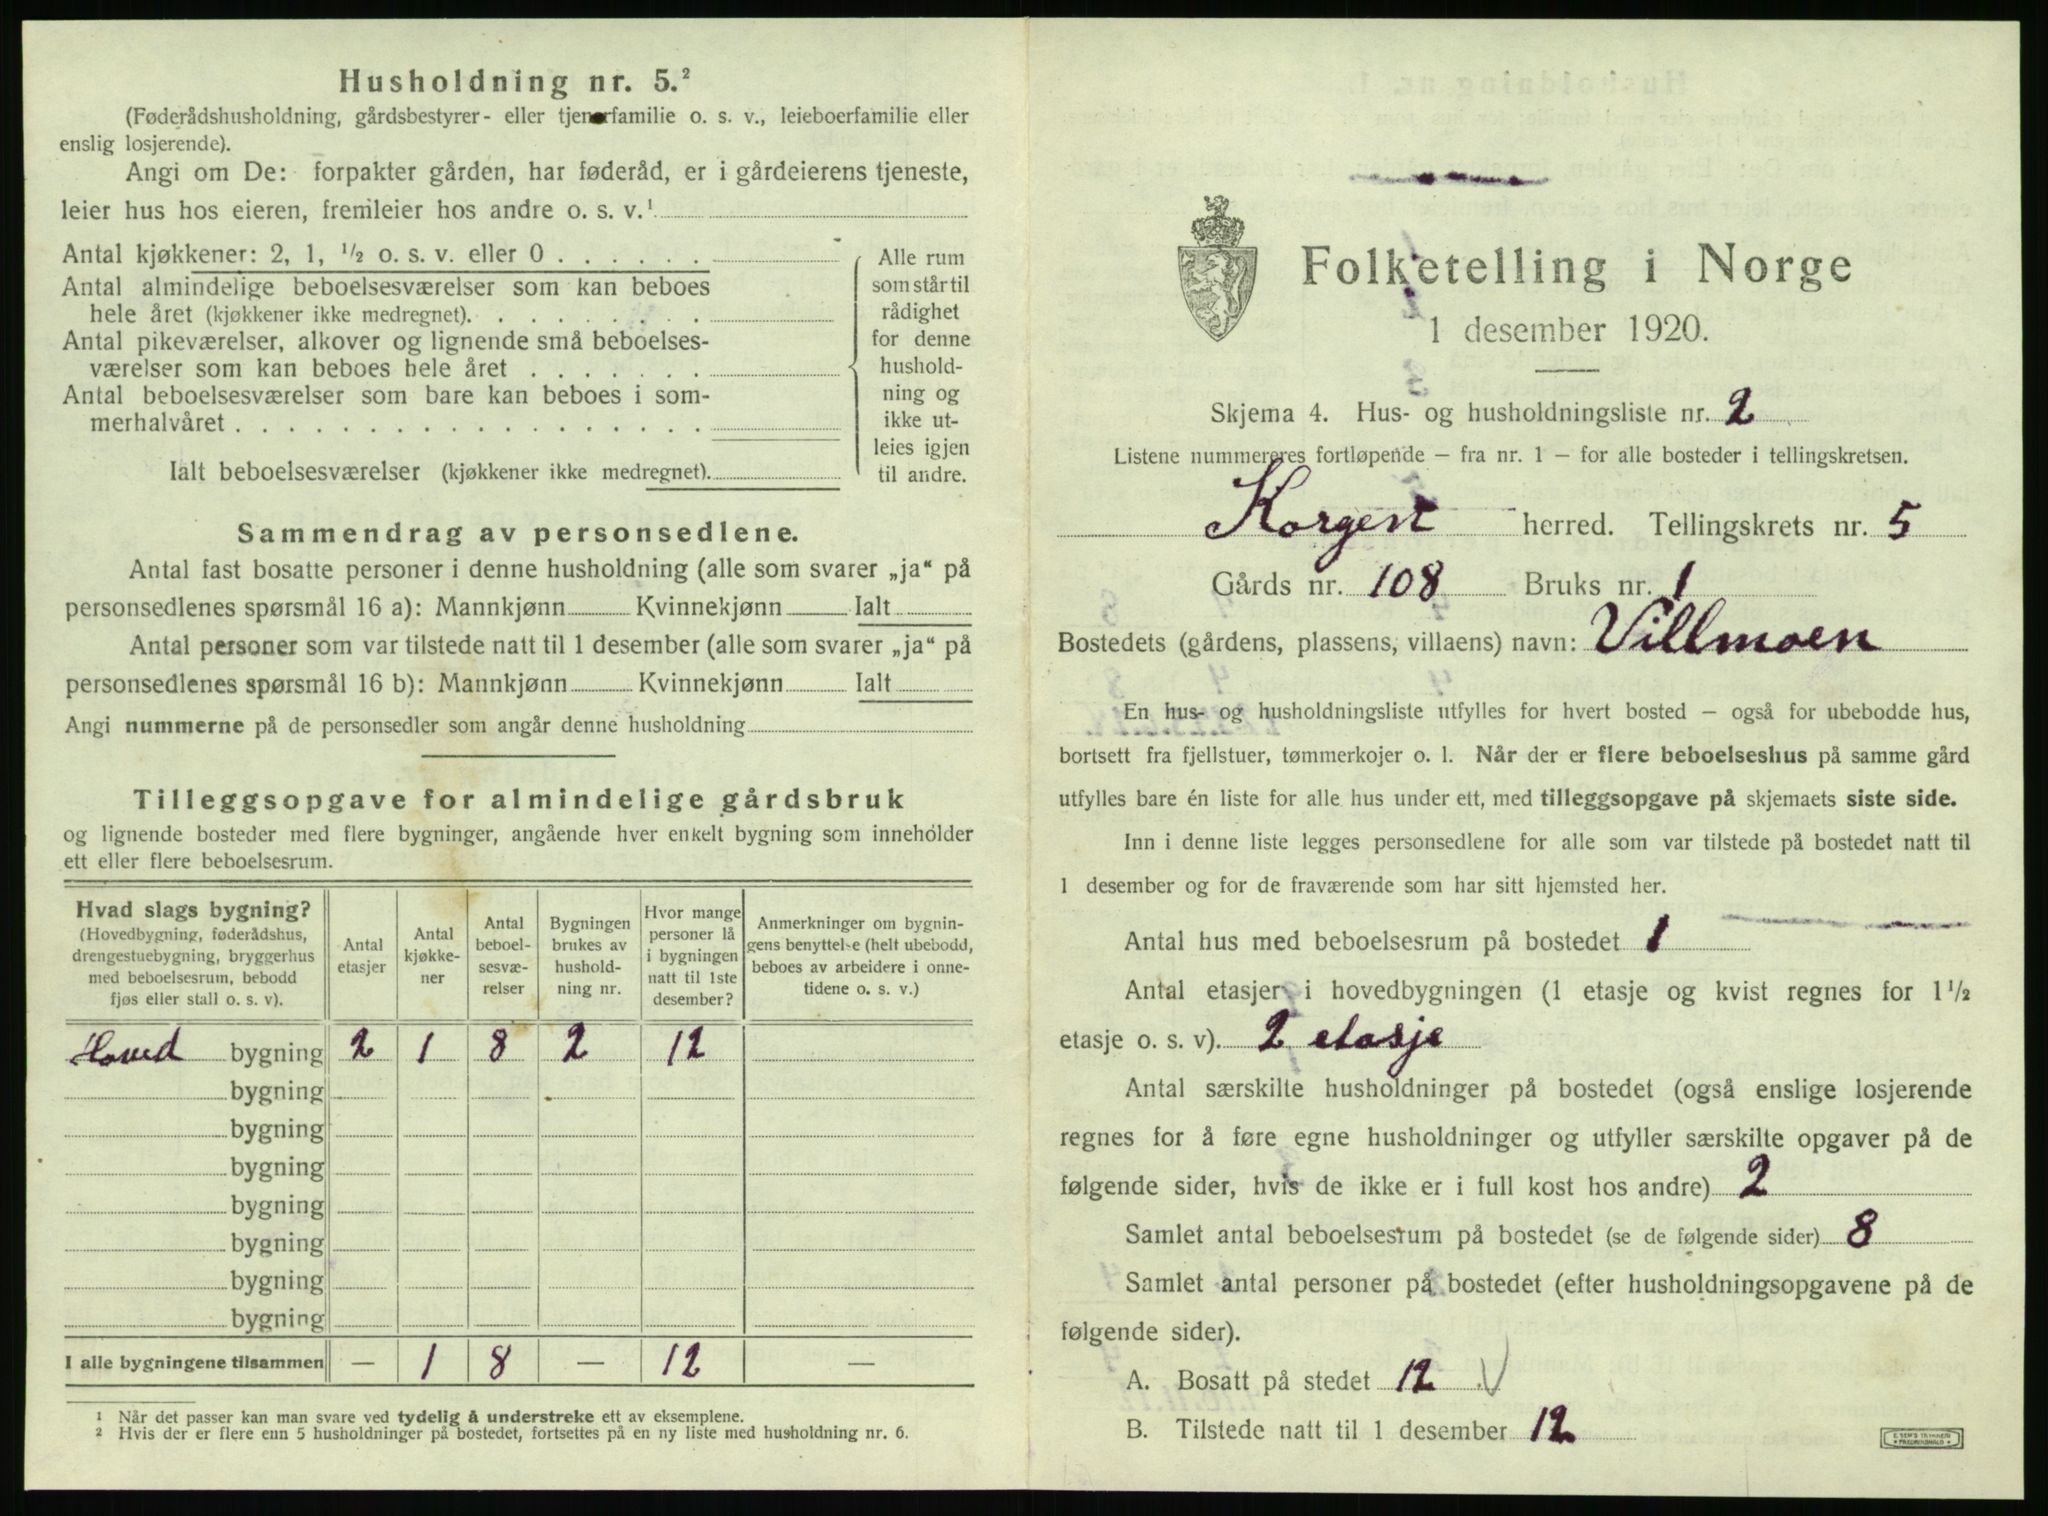 Husholdning nr. 5.²
(Føderådshusholdning, gårdsbestyrer- eller tjenerfamilie o. s. v., leieboerfamilie eller
enslig losjerende).
Angi om De: forpakter gården, har føderåd, er i gårdeierens tjeneste,
leier hus hos eieren, fremleier hos andre o. s. v.¹
Antal kjøkkener: 2, 1, ½ o. s. v. eller 0 . . . . . .
Antal almindelige beboelsesværelser som kan beboes
hele året (kjøkkener ikke medregnet). . . . . . . . .
Antal pikeværelser, alkover og lignende små beboelses-
værelser som kan beboes hele året . . . . . . .
Antal beboelsesværelser som bare kan beboes i som-
merhalvåret . . . . . . . . . . . . . . . . . .
Ialt beboelsesværelser (kjøkkener ikke medregnet).
Alle rum
som står til
rådighet
for denne
hushold-
ning og
ikke ut-
leies igjen
til andre.
Sammendrag av personsedlene.
Antal fast bosatte personer i denne husholdning (alle som svarer „ja“ på
personsedlenes spørsmål 16 a): Mannkjønn Kvinnekjønn Ialt
Antal personer som var tilstede natt til 1 desember (alle som svarer „ja“ på
personsedlenes spørsmål 16 b): Mannkjønn Kvinnekjønn Ialt
Angi nummerne på de personsedler som angår denne husholdning
Tilleggsopgave for almindelige gårdsbruk
og lignende bosteder med flere bygninger, angående hver enkelt bygning som inneholder
ett eller flere beboelsesrum.
Hvad slags bygning?
(Hovedbygning, føderådshus,
drengestuebygning, bryggerhus
med beboelsesrum, bebodd
fjøs eller stall o. s. v).
Antal
etasjer
Antal
kjøkke-
ner
Antal
beboel-
sesvæ-
relser
Bygningen
brukes av
hushold-
ning nr.
Hvor mange
personer lå
i bygningen
natt til 1ste
desember?
Anmerkninger om bygnin-
gens benyttelse (helt ubebodd,
beboes av arbeidere i onne-
tidene o. s. v.)
Hoved bygning 2 1 8 2 12
bygning
bygning
bygning
bygning
bygning
bygning
bygning
I alle bygningene tilsammen — 1 8 — 12 —
¹ Når det passer kan man svare ved tydelig å understreke ett av eksemplene.
² Hvis der er flere enn 5 husholdninger på bostedet, fortsettes på en ny liste med husholdning nr. 6.
Folketelling i Norge
1 desember 1920.
Skjema 4. Hus- og husholdningsliste nr. 2
Listene nummereres fortløpende – fra nr. 1 – for alle bosteder i tellingskretsen.
Korgen herred. Tellingskrets nr. 5
Gårds nr. 108 Bruks nr. 1
Bostedets (gårdens, plassens, villaens) navn: Villmoen
En hus- og husholdningsliste utfylles for hvert bosted – også for ubebodde hus,
bortsett fra fjellstuer, tømmerkojer o. l. Når der er flere beboelseshus på samme gård
utfylles bare én liste for alle hus under ett, med tilleggsopgave på skjemaets siste side.
Inn i denne liste legges personsedlene for alle som var tilstede på bostedet natt til
1 desember og for de fraværende som har sitt hjemsted her.
Antal hus med beboelsesrum på bostedet 1
Antal etasjer i hovedbygningen (1 etasje og kvist regnes for 1½
etasje o. s. v). 2 etasje
Antal særskilte husholdninger på bostedet (også enslige losjerende
regnes for å føre egne husholdninger og utfyller særskilte opgaver på de
følgende sider, hvis de ikke er i full kost hos andre) 2
Samlet antal beboelsesrum på bostedet (se de følgende sider) 8
Samlet antal personer på bostedet (efter husholdningsopgavene på de
følgende sider).
A. Bosatt på stedet 12 V
B. Tilstede natt til 1 desember 12